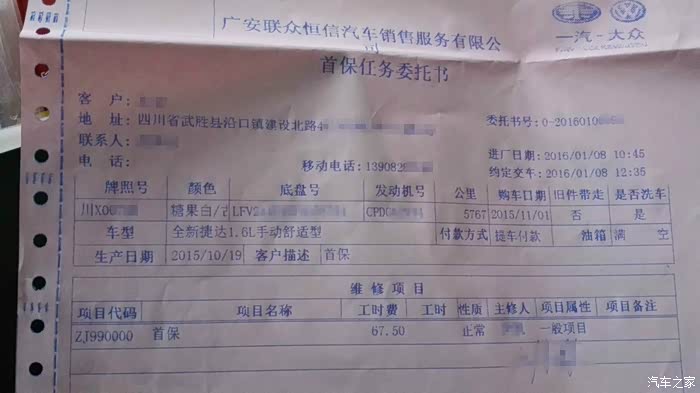 广安联众恒信汽车销售服务有限公
司
一汽-大众
首保任务委托书
客 户:
地 址: 四川省武胜县沿口镇建设北路4
委托书号: 0-2016010
联系人:
进厂日期: 2016/01/08 10:45
电 话: 移动电话: 139082
约定交车: 2016/01/08 12:35
牌照号 颜色 底盘号 发动机号 公里 购车日期 旧件带走 是否洗车
川X0 糖果白/2 LFV2 CPD 5767 2015/11/01 否 是
车型 全新捷达1.6L手动舒适型 付款方式 提车付款 油箱 满 空
生产日期 2015/10/19 客户描述 首保
维 修 项 目
项目代码 项目名称 工时费 工时 性质 主修人 项目属性 项目备注
ZJ990000 首保 67.50 正常 一般项目
汽车之家